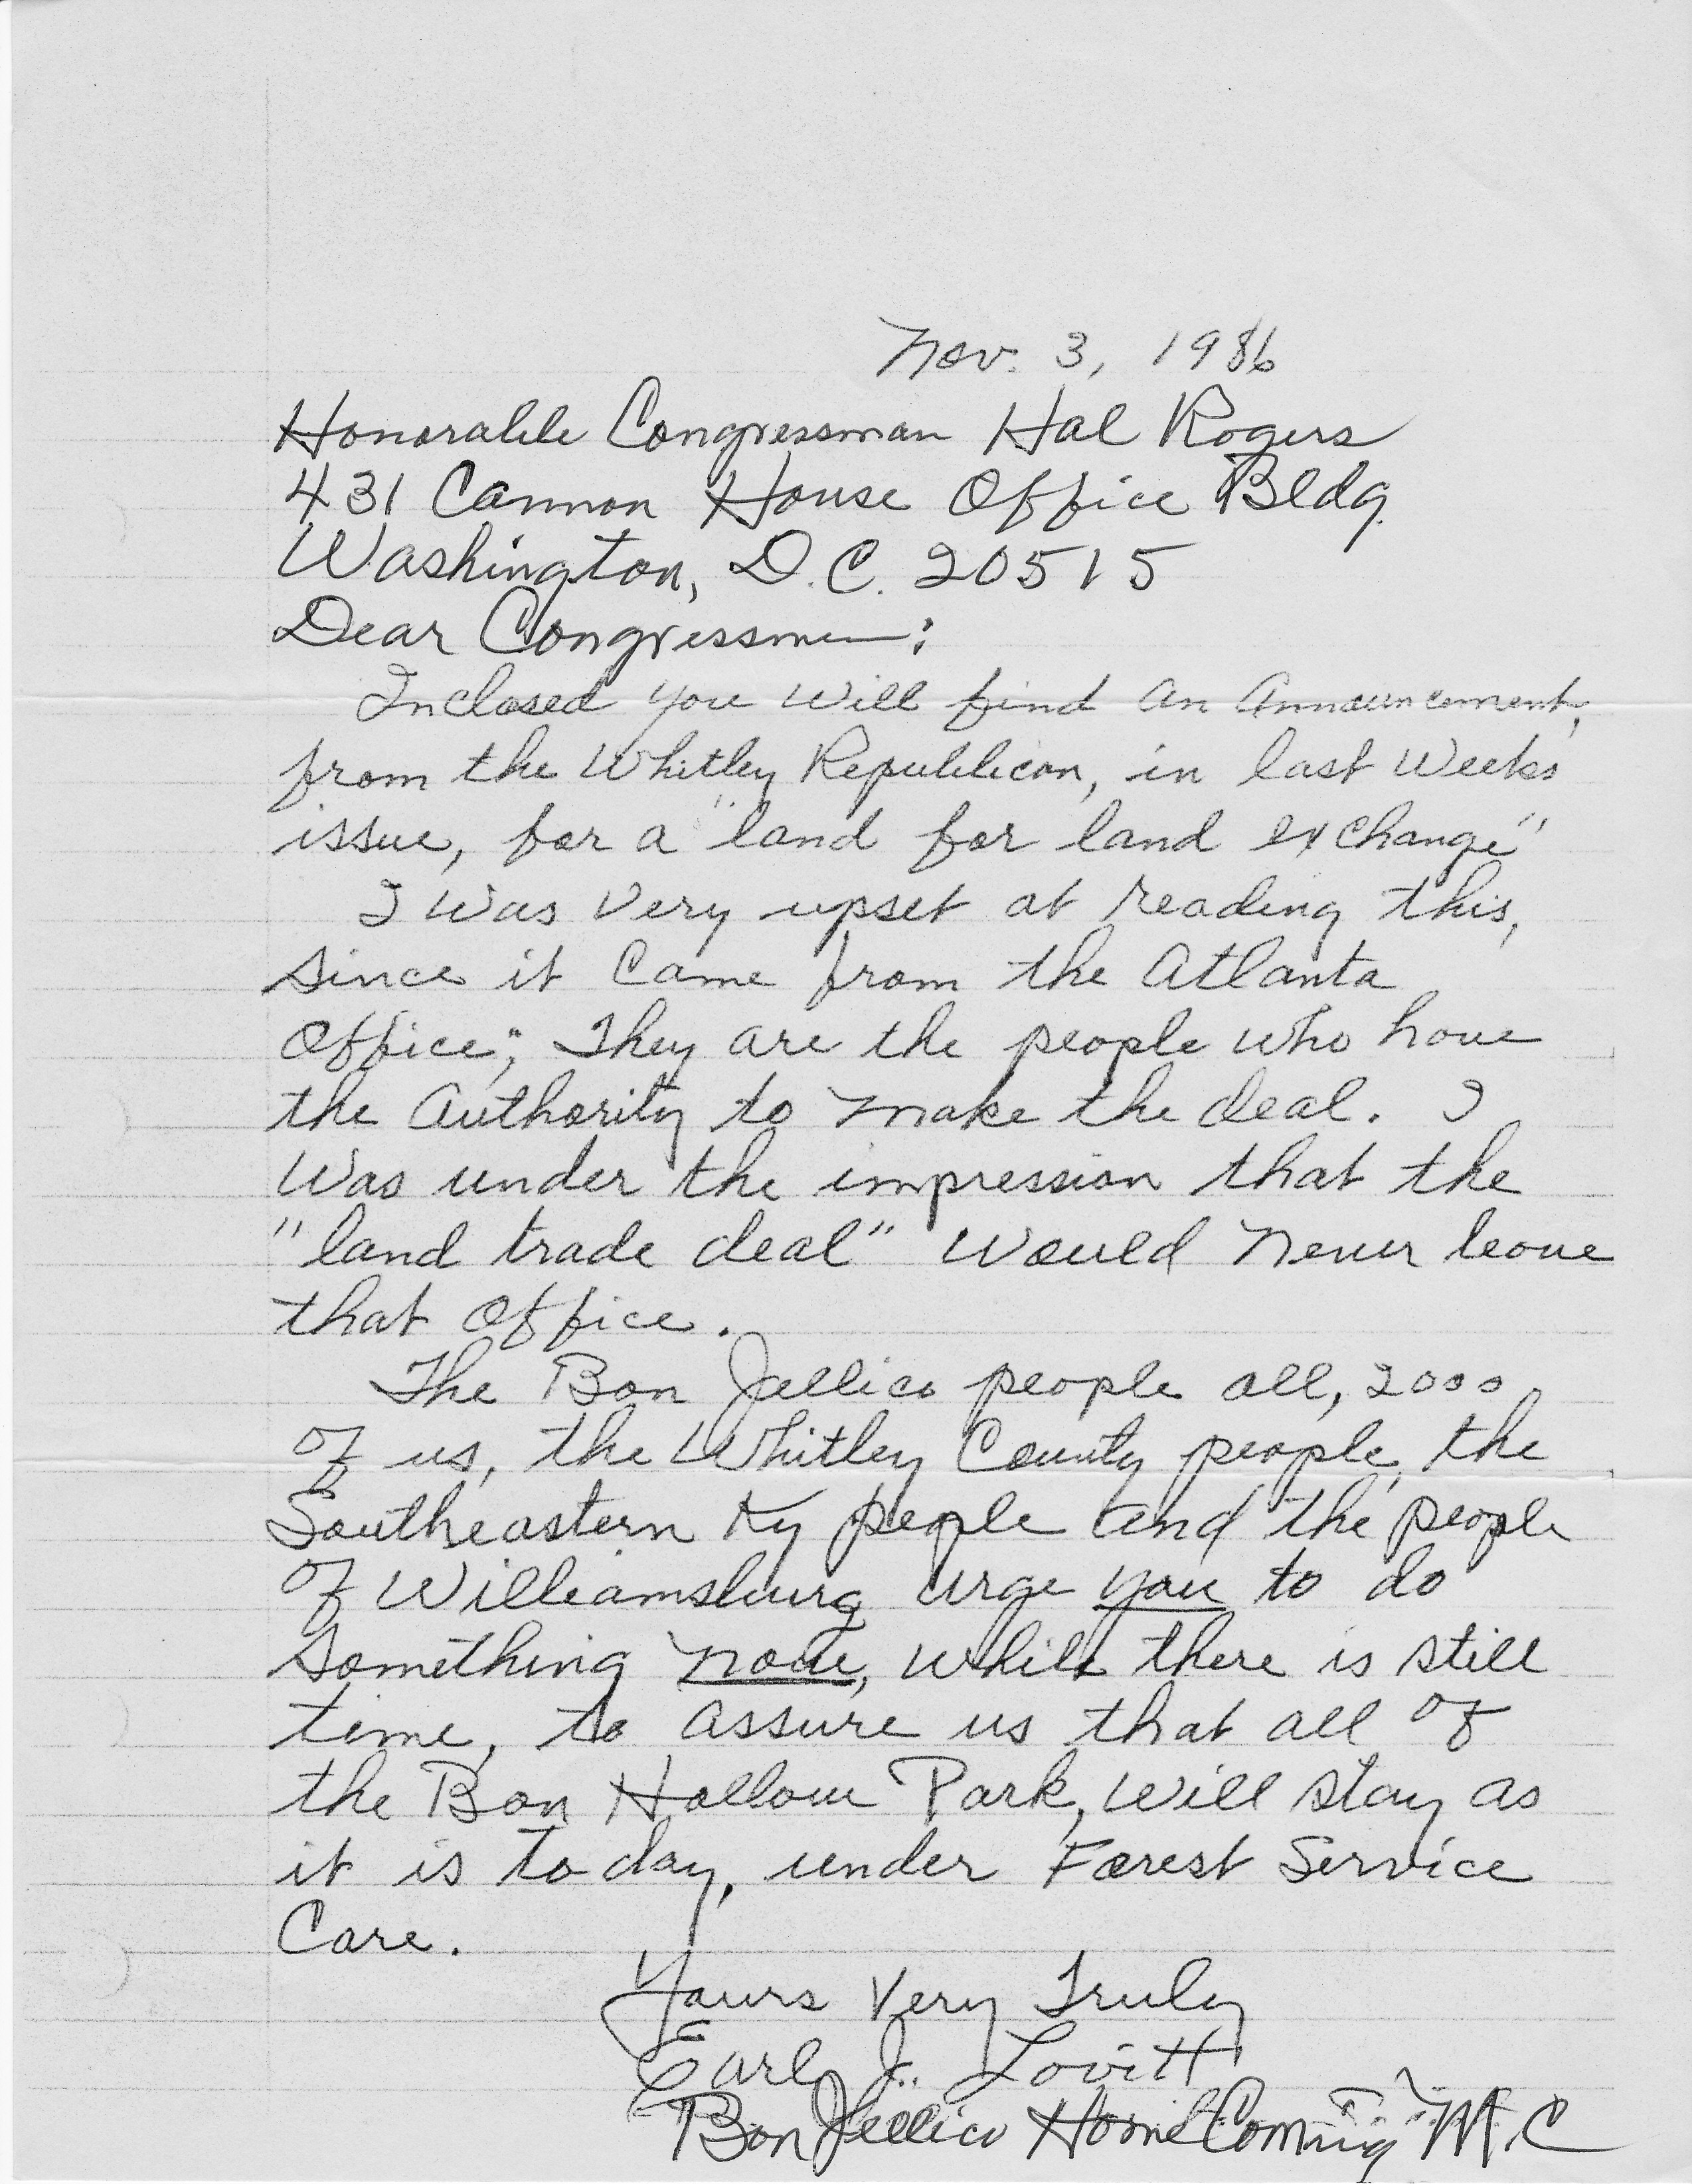 Nov. 3, 1986
Honorable Congressman Hal Rogers
431 Cannon House Office Bldg.
Washington, D.C. 20515
Dear Congressmen:
Inclosed you will find an Announcement,
from the Whitley Republican, in last Weeks
issue, for a "land for land exchange"
I was very upset at reading this,
since it came from the Atlanta
Office; They are the people who have
the Authority to make the deal. I
was under the impression that the
"land trade deal" would never leave
that office.
The Bon Jellico people all, 2000
of us, the Whitley County people, the
Southeastern Ky people and the people
of Williamsburg urge you to do
something now, while there is still
time, to assure us that all of
the Bon Hollow Park, will stay as
it is today, under Forest Service
Care.
Yours Very Truly
Earl J. Lovitt
Bon Jellico HomeComing M.C